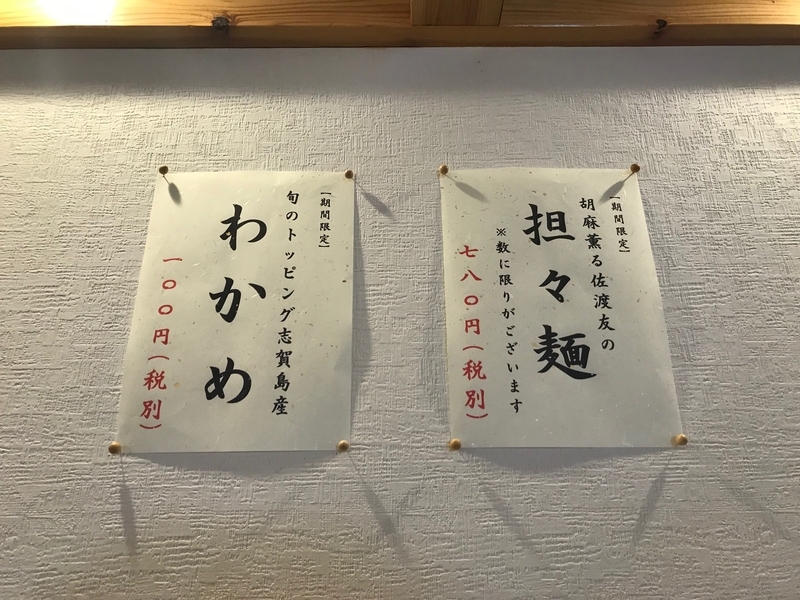 【期間限定】
胡麻薫る佐渡友の
担々麺
※数に限りがございます
七八〇円(税別)
【期間限定】
旬のトッピング志賀島産
わかめ
一〇〇円(税別)